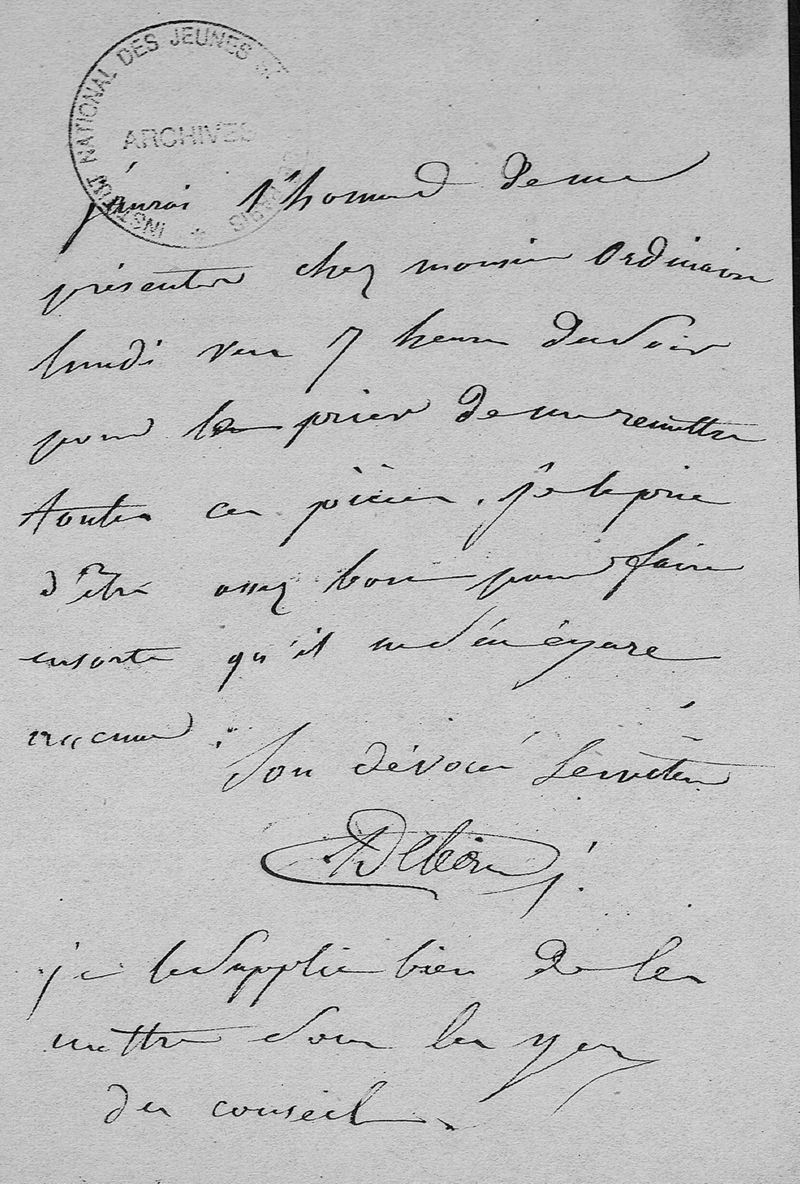 INSTITUT NATIONAL DES JEUNES S PARIS
ARCHIVES
j'aurai l'honneur de me
présenter chez monsieur Ordinaire
lundi vers 7 heures du soir
pour le prier de me remettre
toutes ces pièces. je le prie
d'être assez bon pour faire
ensorte qu'il ne s'en égare
aucune.
Son dévoué Serviteur
j.
je le supplie bien de les
mettre sous les yeux
du conseil.